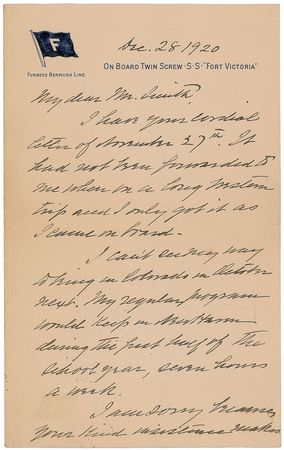 Dec. 28 1920
F
ON BOARD TWIN SCREW·S·S·"FORT VICTORIA"
FURNESS BERMUDA LINE
My dear Mr. Smith,
I have your cordial
letter of November 27th. It
had not been forwarded to
me when on a long western
trip and I only got it as
I came on board.
I can't see my way
to being in Colorado in October
next. My regular program
would keep me
during the first half of the
school year, seven hours
a week.
I am sorry because
your kind insistence makes